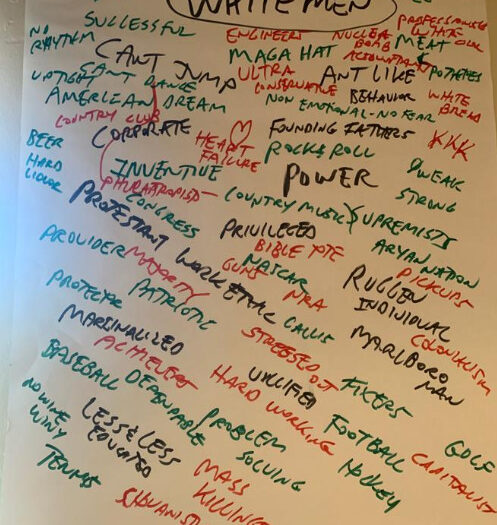 WHITE MEN
NO RHYTHM
SUCCESSFUL
ENGINEERS
NUCLEAR BOMB
PROFESSIONALS
WHITE COLLAR
MEAT & POTATOES
ACCOUNTANT
CANT JUMP
MAGA HAT
ULTRA CONSERVATIVE
ANT LIKE BEHAVIOR
UPTIGHT
CANT DANCE
WHITE BREAD
AMERICAN DREAM
NON EMOTIONAL-NO FEAR
COUNTRY CLUB
CORPORATE
HEART FAILURE
FOUNDING FATHERS
KKK
BEER
HARD LIQUOR
ROCK & ROLL
INVENTIVE
POWER
WEAK
STRONG
CONGRESS
COUNTRY MUSIC
SUPREMISTS
PROTESTANT WORK ETHIC
PRIVILEGED
ARYAN NATION
BIBLE
PROVIDER
MAJORITY
GUNS
NASCAR
NRA
RUGGED INDIVIDUAL
PICKUPS
PATRIOTIC
MARGINALIZED
STRESSED OUT
MARLBORO MAN
BASEBALL
DEPENDABLE
HARD WORKING
FIXERS
NO WINE
WINY
LESS & LESS EDUCATED
PROBLEM SOLVING
FOOTBALL
GOLF
HOCKEY
CAPITALIST
TENNIS
MASS KILLING